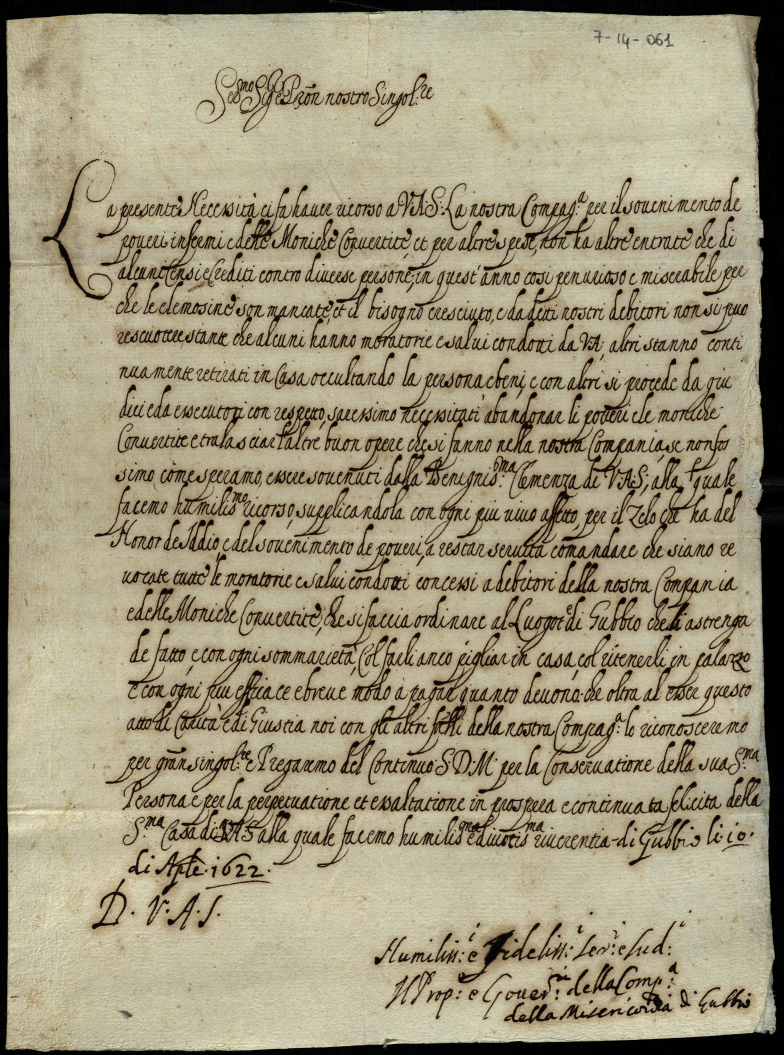 7-14-061
Ser.mo Sig.re e Pron nostro Singol:re
La presente Necessità ci fa haver ricorso a V.A.S. La nostra Compag.a per il sovenimento de
poveri infermi e delle Moniche Convertite et per altre spese, non ha altre entrate che di
alcuni Censi e Crediti contro diverse persone, in quest'anno così penurioso e miserabile per
che le elemosine son mancate, et il bisogno cresciuto, e da detti nostri debitori non si può
rescuotere stante che alcuni hanno moratorie e salvi condotti da VA, altri stanno conti
nuamente retirati in Casa occultando la persona e beni, e con altri si procede da giu
dici e da essecutori con respetto, saressimo necessitati abandonar li poveri e le moniche
Convertite e tralasciar l'altre buon opere che si fanno nella nostra Compania se non fos
simo, come speramo, essere sovenuti dalla Benignis:ma Clemenza di V.A.S; alla quale
facemo humilis:mo ricorso, supplicandola con ogni più vivo affetto, per il Zelo che ha del
Honor de Iddio, e del sovenimento de poveri, a restar servita comandare che siano re
vocate tutte le moratorie e salvi condotti concessi a debitori della nostra Compania
e delle Moniche Convertite, che si faccia ordinare al Luogot.e di Gubbio che li astrenga
de fatto, e con ogni sommarietà, Col farli anco pigliar in casa, col ritenerli in palazzo
e con ogni più efficace e breve modo a pagar quanto devono: che oltra al esser questo
atto di Carità e di Giustia noi con gli altri frelli della nostra Compag.a lo riconosceremo
per gran singol:re e Pregaremo del Continuo S.D.M. per la Conservatione della sua S.ma
Persona e per la perpetuatione et essaltatione in prospera e continuata felicita della
S.ma Casa di VAS alla quale facemo humilis:ma e divotis:ma riverentia - di Gubbio li 10.
di Aple. 1622.
D. V. A. S.
Humiliss:i e Fideliss:i Ser:i e Sud:i
Il Prop:e e Gover:ri della Comp:a
della Misericordia di Gubbio